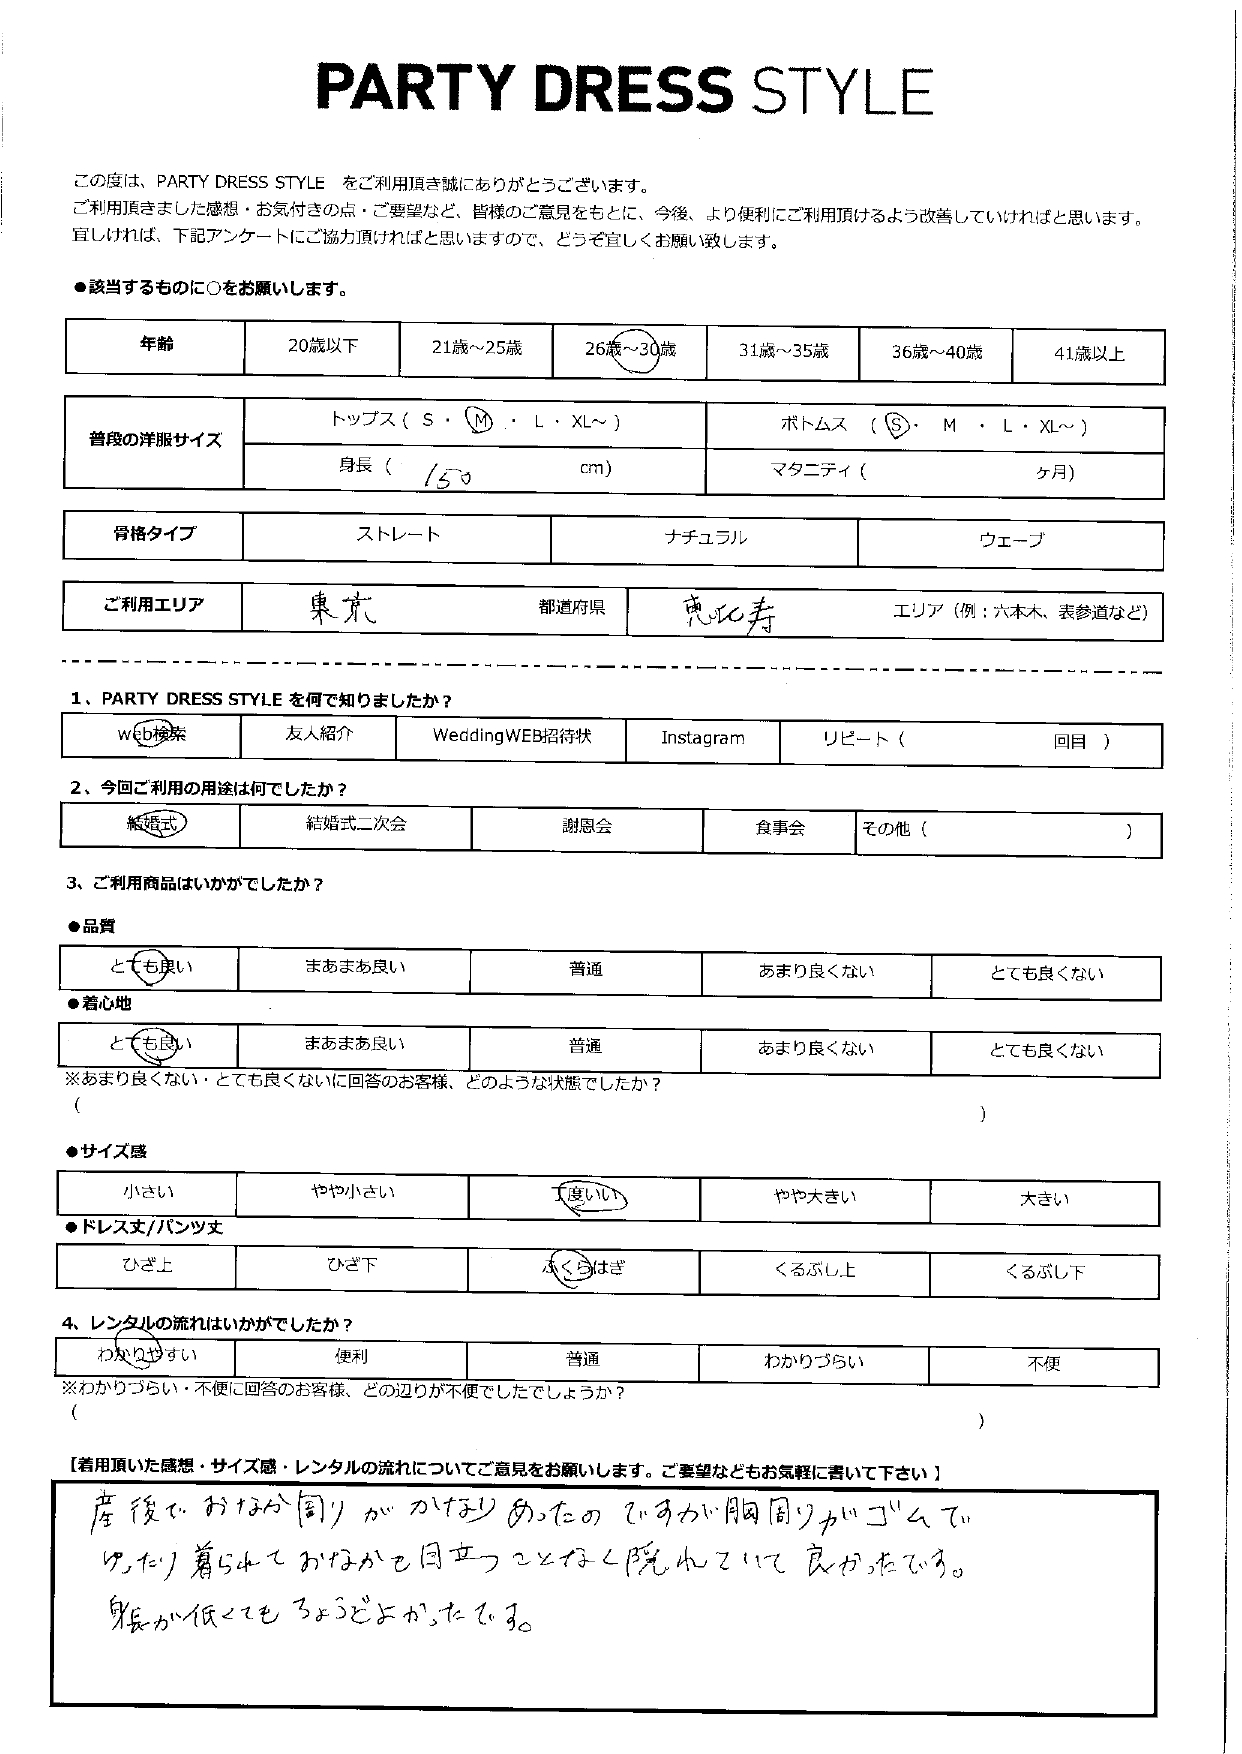 PARTY DRESS STYLE
この度は、PARTY DRESS STYLE をご利用頂き誠にありがとうございます。
ご利用頂きました感想・お気付きの点・ご要望など、皆様のご意見をもとに、今後、より便利にご利用頂けるよう改善していければと思います。
宜しければ、下記アンケートにご協力頂ければと思いますので、どうぞ宜しくお願い致します。
●該当するものに○をお願いします。
年齢 20歳以下 21歳～25歳 26歳～30歳 31歳～35歳 36歳～40歳 41歳以上
普段の洋服サイズ トップス ( S ・ M ・ L ・ XL～ ) ボトムス ( S ・ M ・ L ・ XL～ )
身長 ( 150 cm) マタニティ ( ヶ月)
骨格タイプ ストレート ナチュラル ウェーブ
ご利用エリア 東京 都道府県 恵比寿 エリア（例：六本木、表参道など）
1、PARTY DRESS STYLE を何で知りましたか？
web検索 友人紹介 WeddingWEB招待状 Instagram リピート ( 回目 )
2、今回ご利用の用途は何でしたか？
結婚式 結婚式二次会 謝恩会 食事会 その他 ( )
3、ご利用商品はいかがでしたか？
●品質
とても良い まあまあ良い 普通 あまり良くない とても良くない
●着心地
とても良い まあまあ良い 普通 あまり良くない とても良くない
※あまり良くない・とても良くないに回答のお客様、どのような状態でしたか？
( )
●サイズ感
小さい やや小さい 丁度いい やや大きい 大きい
●ドレス丈/パンツ丈
ひざ上 ひざ下 ふくらはぎ くるぶし上 くるぶし下
4、レンタルの流れはいかがでしたか？
わかりやすい 便利 普通 わかりづらい 不便
※わかりづらい・不便に回答のお客様、どの辺りが不便でしたでしょうか？
( )
【着用頂いた感想・サイズ感・レンタルの流れについてご意見をお願いします。ご要望などもお気軽に書いて下さい 】
産後で おなか周り が かなり あったの ですが 胸周りが ゴムで
ゆったり 着られて おなかも 目立つ ことなく 隠れていて 良かったです。
身長が 低くても ちょうどよかったです。